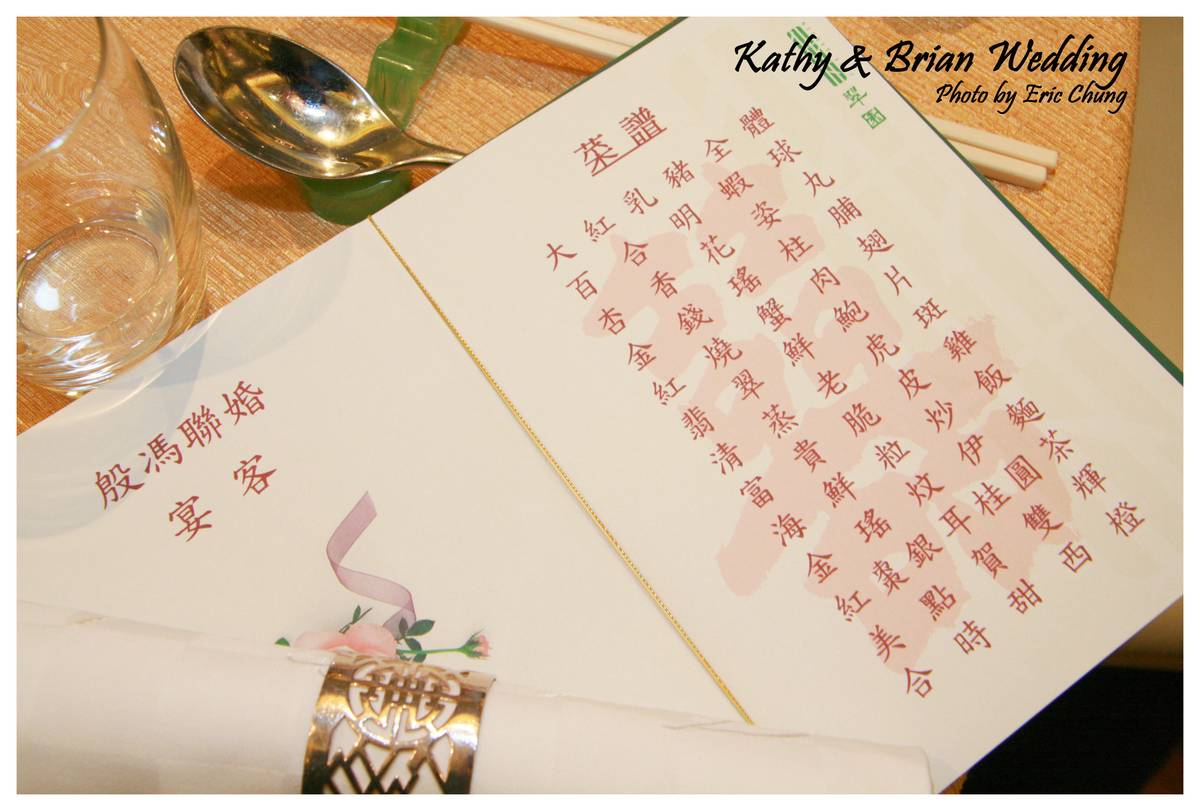 Kathy & Brian Wedding
Photo by Eric Chung
翠園
菜譜
大紅乳豬全體
百合明蝦球
杏香花姿丸
金錢瑤柱脯
紅燒蟹肉翅
翡翠鮮鮑片
清蒸老虎斑
富貴脆皮雞
海鮮粒炒飯
金瑤炆伊麵
紅棗銀耳桂圓茶
美點賀雙輝
合時甜西橙
殷馮聯婚
宴客